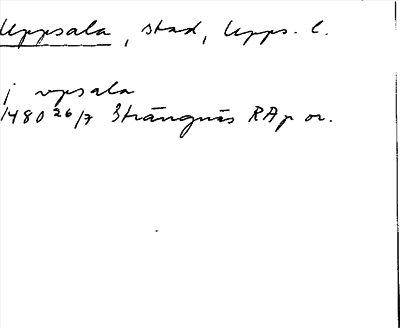 Uppsala, stad, Upps. l.
j vpsala
1480 26/7 Strängnäs RAp or.